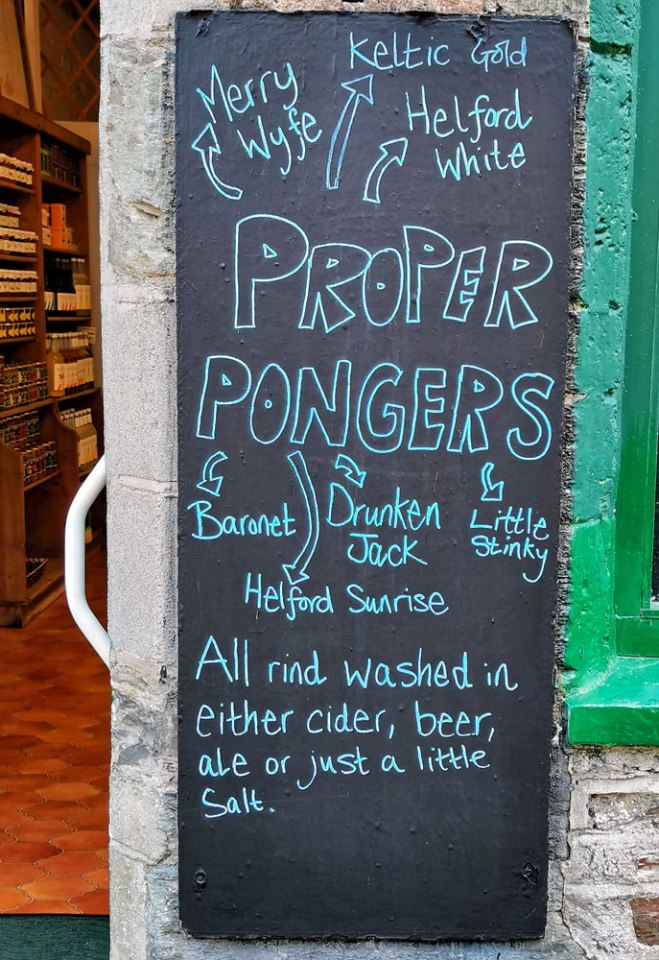 Keltic Gold
Merry
Wyfe
Helford
White
PROPER
PONGERS
Baronet
Drunken
Jack
Little
Stinky
Helford Sunrise
All rind washed in
either cider, beer,
ale or just a little
Salt.